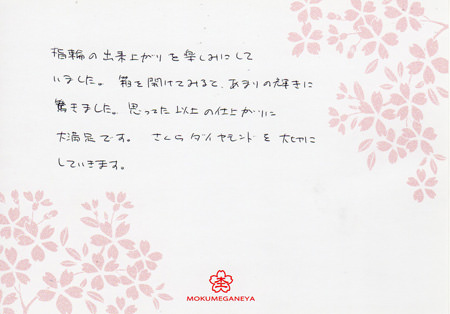 指輪の出来上がりを楽しみにして
いました。箱を開けてみると、あまりの輝きに
驚きました。思ってた以上の仕上がりに
大満足です。さくらダイヤモンドを大切に
していきます。
MOKUMEGANEYA